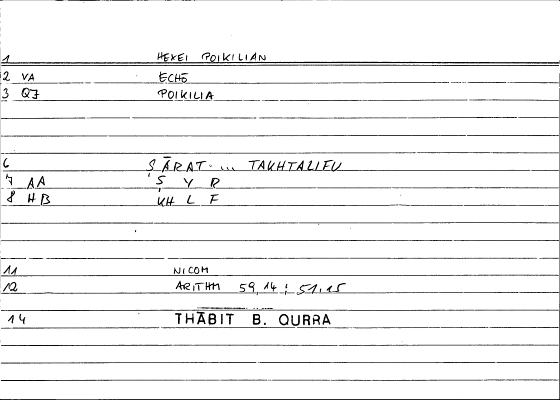 1 HEXEI POIKILIAN
2 VA ECHŌ
3 QJ POIKILIA
6 ṢĀRAT ... TAKHTALIFU
7 AA Ṣ Y R
8 HB KH L F
11 NICOM
12 ARITHM 59,14 ; 51,15
14 THĀBIT B. QURRA